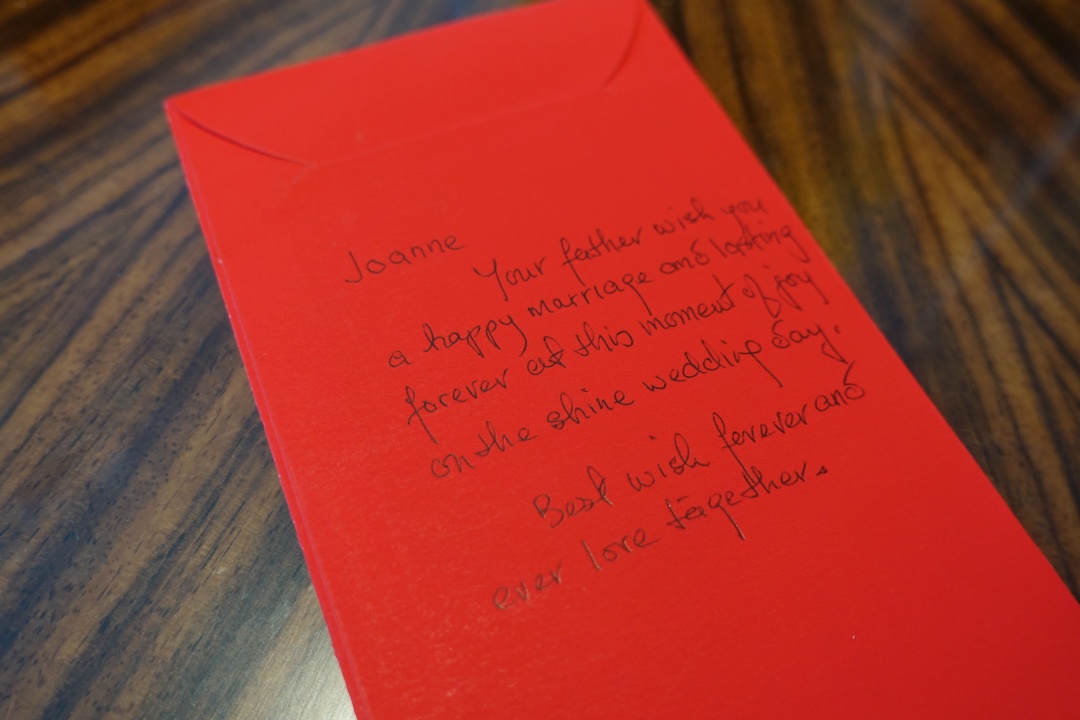 Joanne
Your father wish you
a happy marriage and lasting
forever at this moment of joy
on the shine wedding day.
Best wish ferever and
ever love tegether.